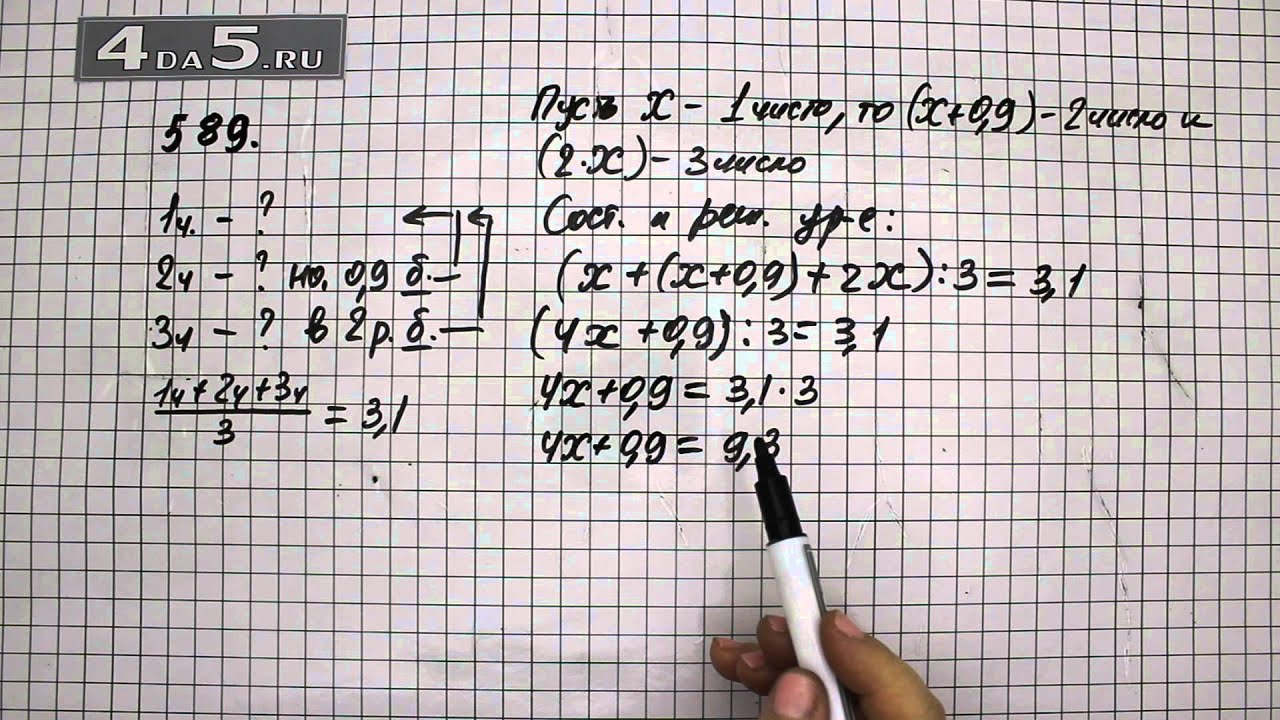 4DA5.RU
589.
1ч. - ?
2ч - ? на 0,9 б.
3ч - ? в 2р. б.
1ч + 2ч + 3ч
3
= 3,1
Пусть x - 1 число, то (x+0,9) - 2 число и
(2·x) - 3 число
Сост. и реш. ур-е:
(x + (x+0,9) + 2x) : 3 = 3,1
(4x + 0,9) : 3 = 3,1
4x + 0,9 = 3,1 · 3
4x + 0,9 = 9,3